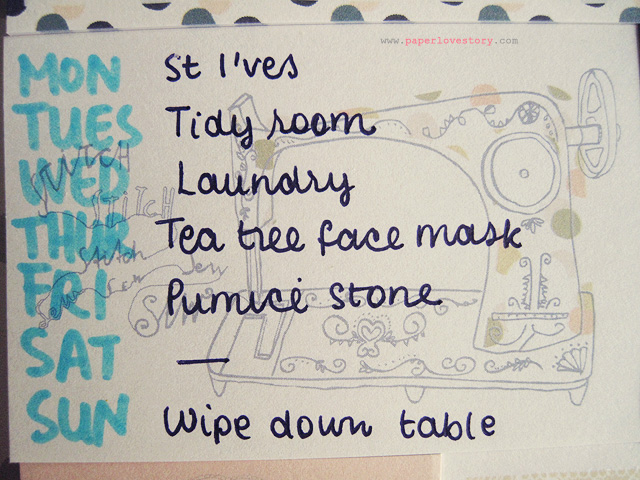 www.paperlovestory.com
MON St I'ves
TUES Tidy room
WED Laundry
THUR Tea tree face mask
FRI Pumice stone
SAT —
SUN Wipe down table
STITCH
STITCH
Stitch
Sew